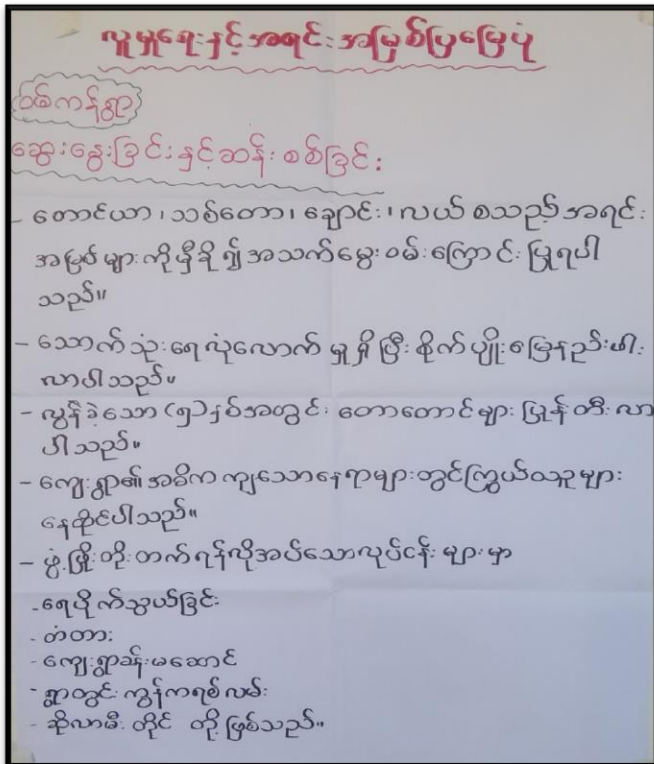 လူမှုရေးနှင့်အရင်းအမြစ်ပြမြေပုံ
ဝမ်ကန်ရွာ
ဆွေးနွေးခြင်းနှင့်ဆန်းစစ်ခြင်း
- တောင်ယာ၊ သစ်တော၊ ချောင်း၊ လယ် စသည့်အရင်း
အမြစ်များကိုမှီခို၍ အသက်မွေးဝမ်းကြောင်းပြုရပါ
သည်။
- သောက်သုံးရေလုံလောက်မှုရှိပြီး စိုက်ပျိုးမြေနည်းပါး
လာပါသည်။
- လွန်ခဲ့သော (၅)နှစ်အတွင်း တောတောင်များ ပြုန်တီးလာ
ပါသည်။
- ကျေးရွာ၏အဓိကကျသောနေရာများတွင်ကြွယ်ဝသူများ
နေထိုင်ပါသည်။
- ဖွံ့ဖြိုးတိုးတက်ရန်လိုအပ်သောလုပ်ငန်းများမှာ
- ရေပိုက်သွယ်ခြင်း
- တံတား
- ကျေးရွာခန်းမဆောင်
- ရွာတွင်းကွန်ကရစ်လမ်း
- ဆိုလာမီးတိုင် တို့ဖြစ်သည်။